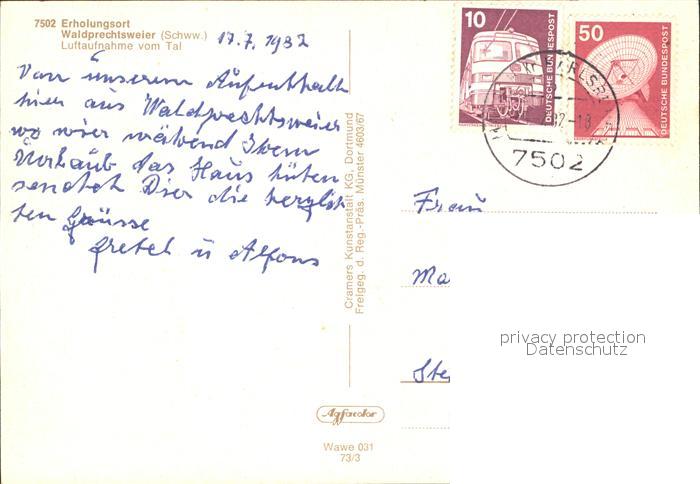 7502 Erholungsort
Waldprechtsweier (Schww.)
Luftaufnahme vom Tal
17.7.1982
Von unserem Aufenthalt
hier aus Waldprechtsweier
wo wir während Ihrem
Uhrlaub das Haus hüten
sendet Dier die herzlich
ten Grüsse
Gretel u Alfons
Cramers Kunstanstalt KG, Dortmund
Freigeg. d. Reg.-Präs. Münster 4603/67
10
DEUTSCHE BUNDESPOST
50
DEUTSCHE BUNDESPOST
7502
Frau
Ma
Ste
privacy protection
Datenschutz
Agfacolor
Wawe 031
73/3